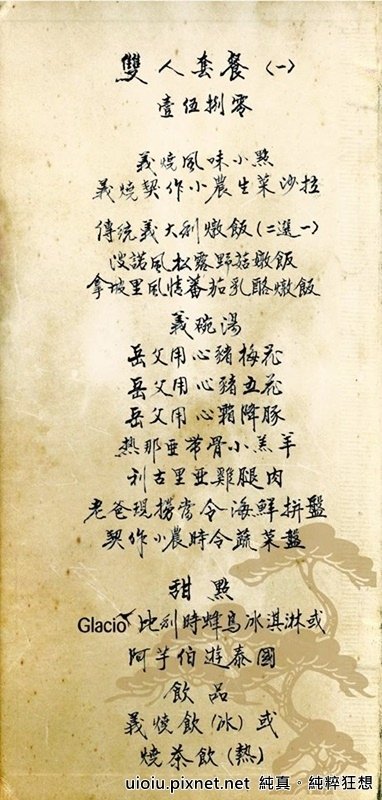 雙人套餐(一)
壹伍捌零
義燒風味小點
義燒契作小農生菜沙拉
傳統義大利燉飯(二選一)
波諾風松露野菇燉飯
拿坡里風情蕃茄乳酪燉飯
義碗湯
岳父用心豬梅花
岳父用心豬五花
岳父用心霜降豚
熱那亞帶骨小羔羊
利古里亞雞腿肉
老爸現撈當令海鮮拼盤
契作小農時令蔬菜盤
甜點
Glacio 比利時蜂鳥冰淇淋或
阿芋伯遊泰國
飲品
義燒飲(冰)或
燒茶飲(熱)
uioiu.pixnet.net 純真。純粹狂想